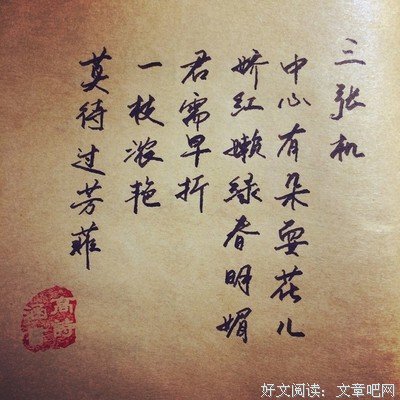 三张机
中心有朵耍花儿
娇红嫩绿春明媚
君需早折
一枝浓艳
莫待过芳菲
好文阅读：文章吧网